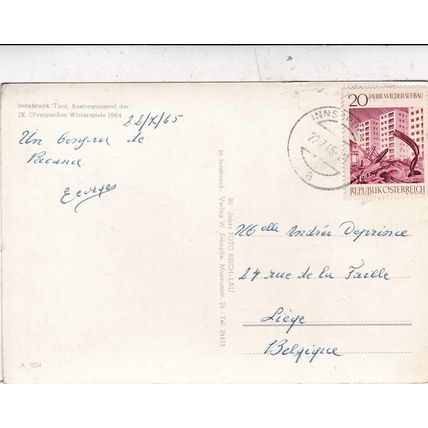 Innsbruck/Tirol, Austragungsort der
IX. Olympischen Winterspiele 1964
22/7/65
Un bonjour de
Vacance
Georges
60 Jahre FOTO RISCH-LAU
in Innsbruck Verlag W. Stempfle, Museumstr. 24 - Tel.
20 JAHRE WIEDERAUFBAU
REPUBLIK ÖSTERREICH
INNS
22.7.65
a
Melle Andrée Deprince
27 rue de la Faille
Liège
Belgique
A 1024